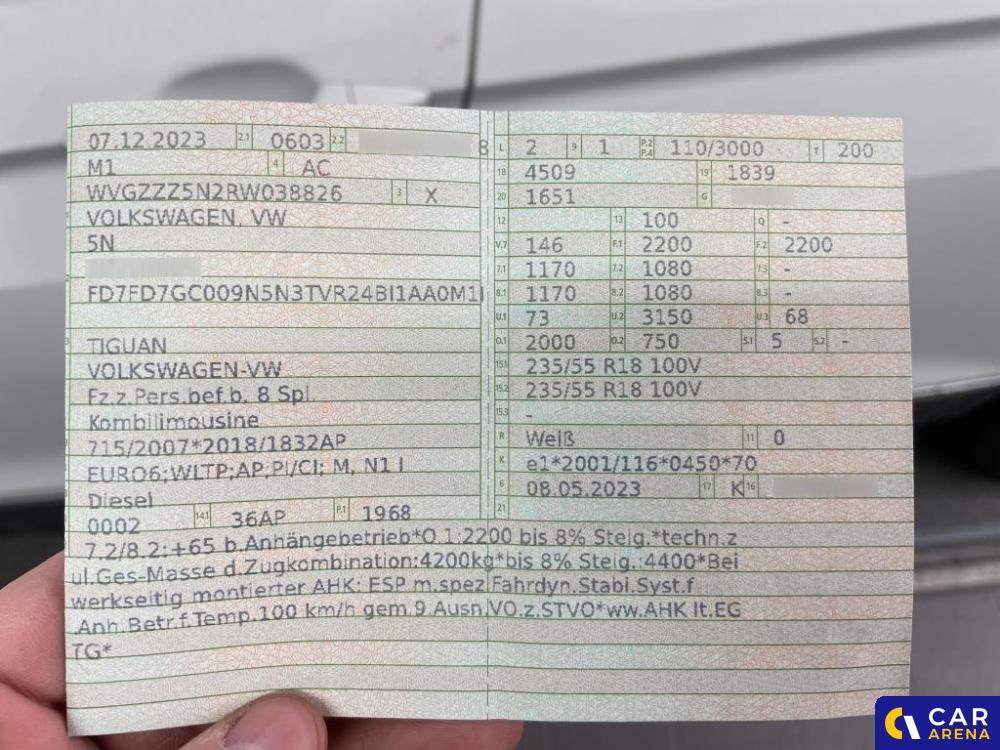 07.12.2023 2.1 0603 2.2 8
M1 4 AC
WVGZZZ5N2RW038826 3 X
VOLKSWAGEN, VW
5N
FD7FD7GC009N5N3TVR24BI1AA0M1
TIGUAN
VOLKSWAGEN-VW
Fz.z.Pers.bef.b. 8 Spl.
Kombilimousine
715/2007*2018/1832AP
EURO6;WLTP;AP;PI/CI; M, N1 I
Diesel
0002 14.1 36AP P.1 1968
L 2 9 1 P.2 P.4 110/3000 T 200
18 4509 19 1839
20 1651 G
12 13 100 Q -
V.7 146 F.1 2200 F.2 2200
7.1 1170 7.2 1080 7.3 -
8.1 1170 8.2 1080 8.3 -
U.1 73 U.2 3150 U.3 68
O.1 2000 O.2 750 S.1 5 S.2 -
15.1 235/55 R18 100V
15.2 235/55 R18 100V
15.3 -
R Weiß 11 0
K e1*2001/116*0450*70
6 08.05.2023 17 K 16
21
7.2/8.2:+65 b.Anhängebetrieb*O.1:2200 bis 8% Steig.*techn.z
ul.Ges-Masse d.Zugkombination:4200kg*bis 8% Steig.:4400*Bei
werkseitig montierter AHK: ESP m.spez.Fahrdyn.Stabi.Syst.f
.Anh.Betr.f.Temp.100 km/h gem.9.Ausn.VO.z.STVO*ww.AHK lt.EG
TG*
CAR
ARENA